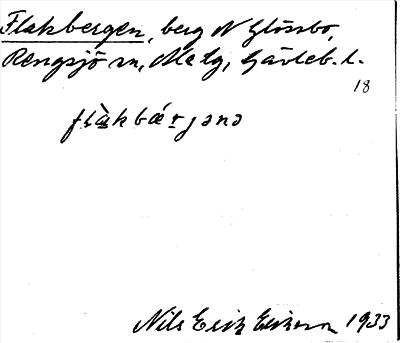 Flakbergen, berg N Glössbo,
Rengsjö sn, Mellg, Gävleb. l.
18
flàkbæ̀rjənə
Nils Erik Eriksson 1933